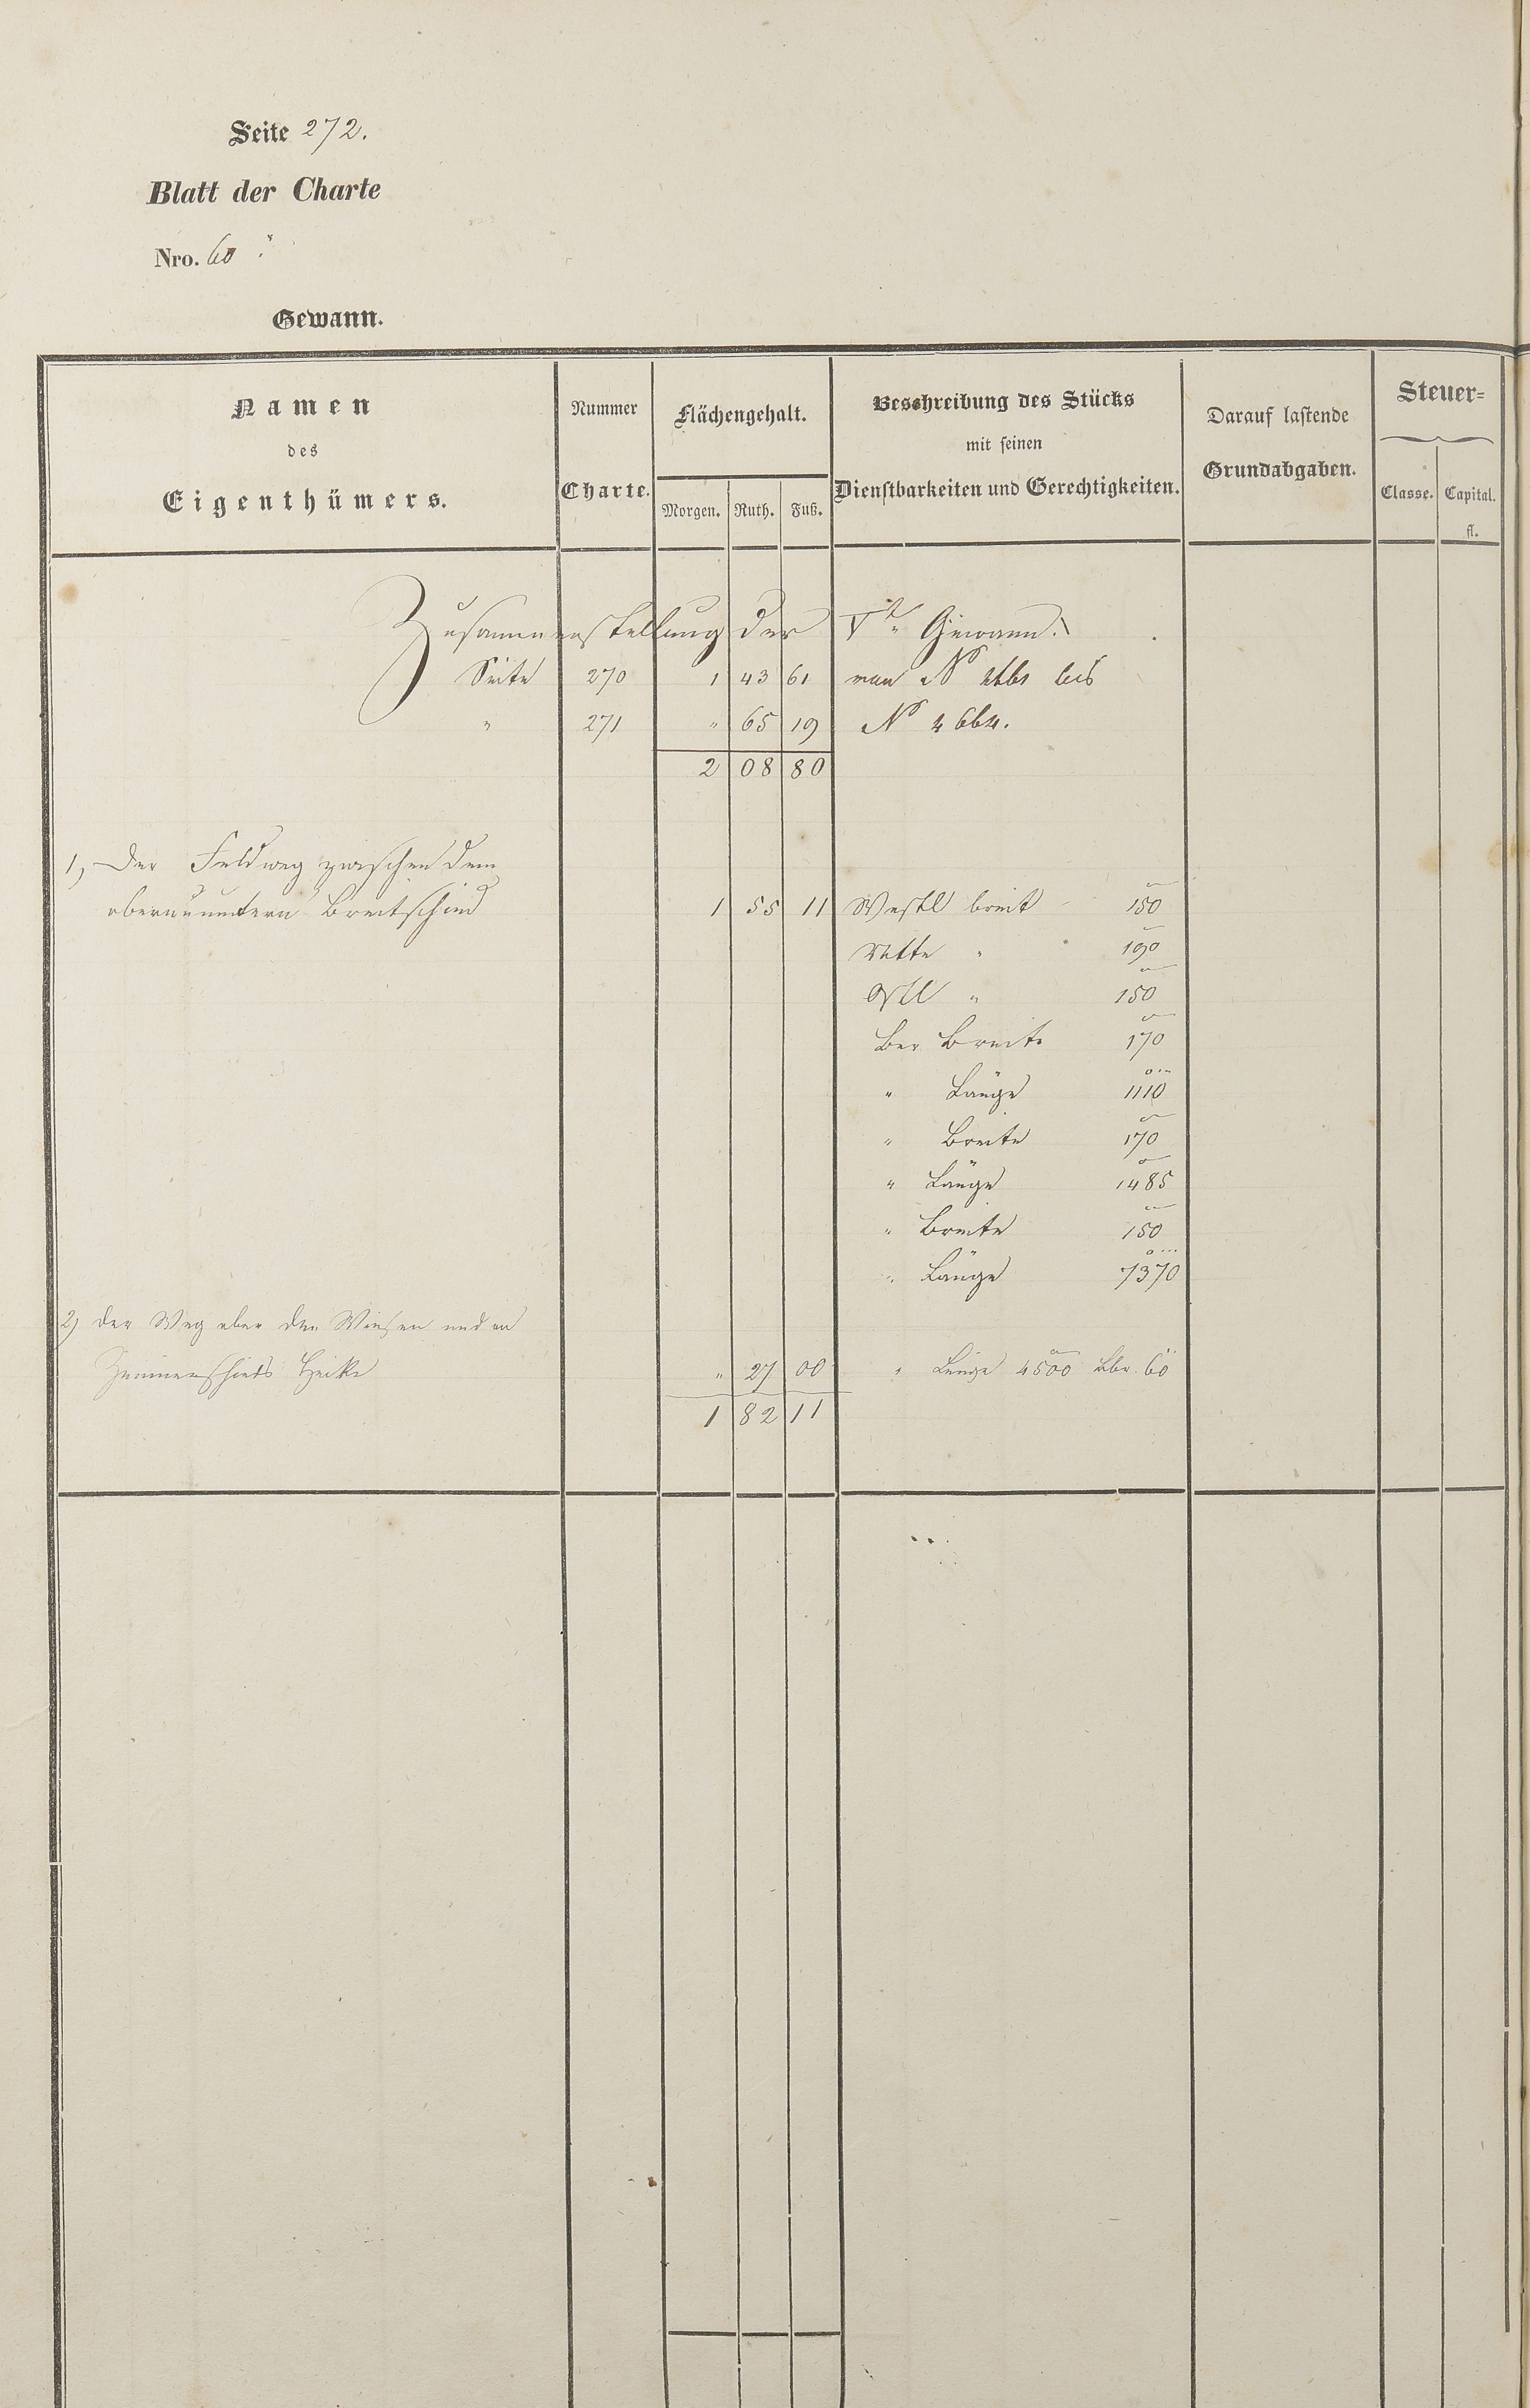 Seite 272.
Blatt der Charte
Nro. 60
Gewann.
Namen
des
Eigenthümers.
Nummer
Charte.
Flächengehalt.
Morgen. Ruth. Fuß.
Beschreibung des Stücks
mit seinen
Dienstbarkeiten und Gerechtigkeiten.
Darauf lastende
Grundabgaben.
Steuer=
Classe. Capital.
fl.
Zusammenstellung der Vte Gewann.
Seite 270 1 43 61 von No 4661 bis
" 271 " 65 19 No 4664.
2 08 80
1, Der Feldweg zwischen dem
obern u untern Breitschied 1 55 11 Westl breit 150
Mitte " 190
Ostl " 150
Ber Breite 170
" Länge 1110
" Breite 170
" Länge 1485
" Breite 150
" Länge 7370
2) der Weg ober den Wiesen und an
Hecke " 27 00 " Länge 4500 Bbr. 60
1 82 11